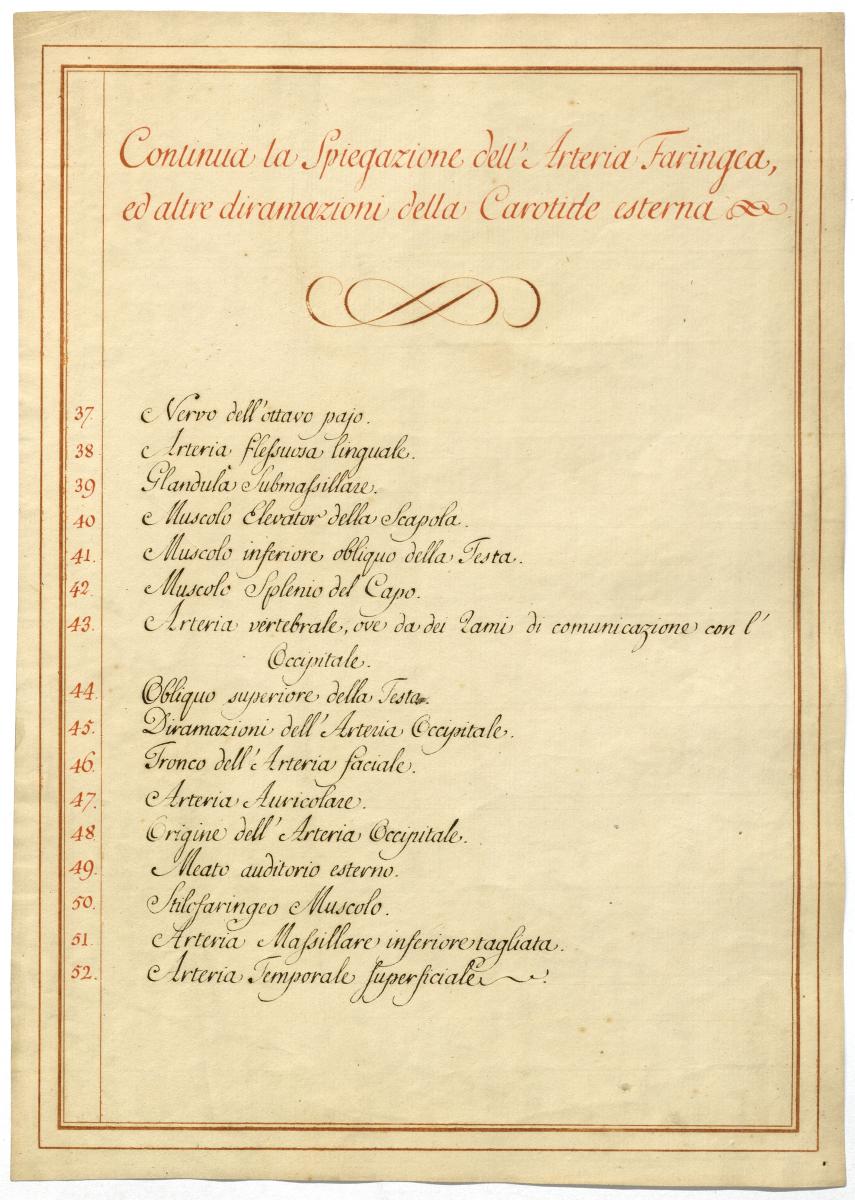 Continua la Spiegazione dell'Arteria Faringea,
ed altre diramazioni della Carotide esterna
37. Nervo dell'ottavo pajo.
38 Arteria flessuosa linguale.
39 Glandula Submassillare.
40 Muscolo Elevator della Scapola.
41. Muscolo inferiore obliquo della Testa.
42. Muscolo Splenio del Capo.
43. Arteria vertebrale, ove da dei Rami di comunicazione con l'
Occipitale.
44. Obliquo superiore della Testa.
45. Diramazioni dell'Arteria Occipitale.
46. Tronco dell'Arteria faciale.
47. Arteria Auricolare.
48. Origine dell'Arteria Occipitale.
49. Meato auditorio esterno.
50. Stilofaringeo Muscolo.
51. Arteria Massillare inferiore tagliata.
52. Arteria Temporale superficiale.